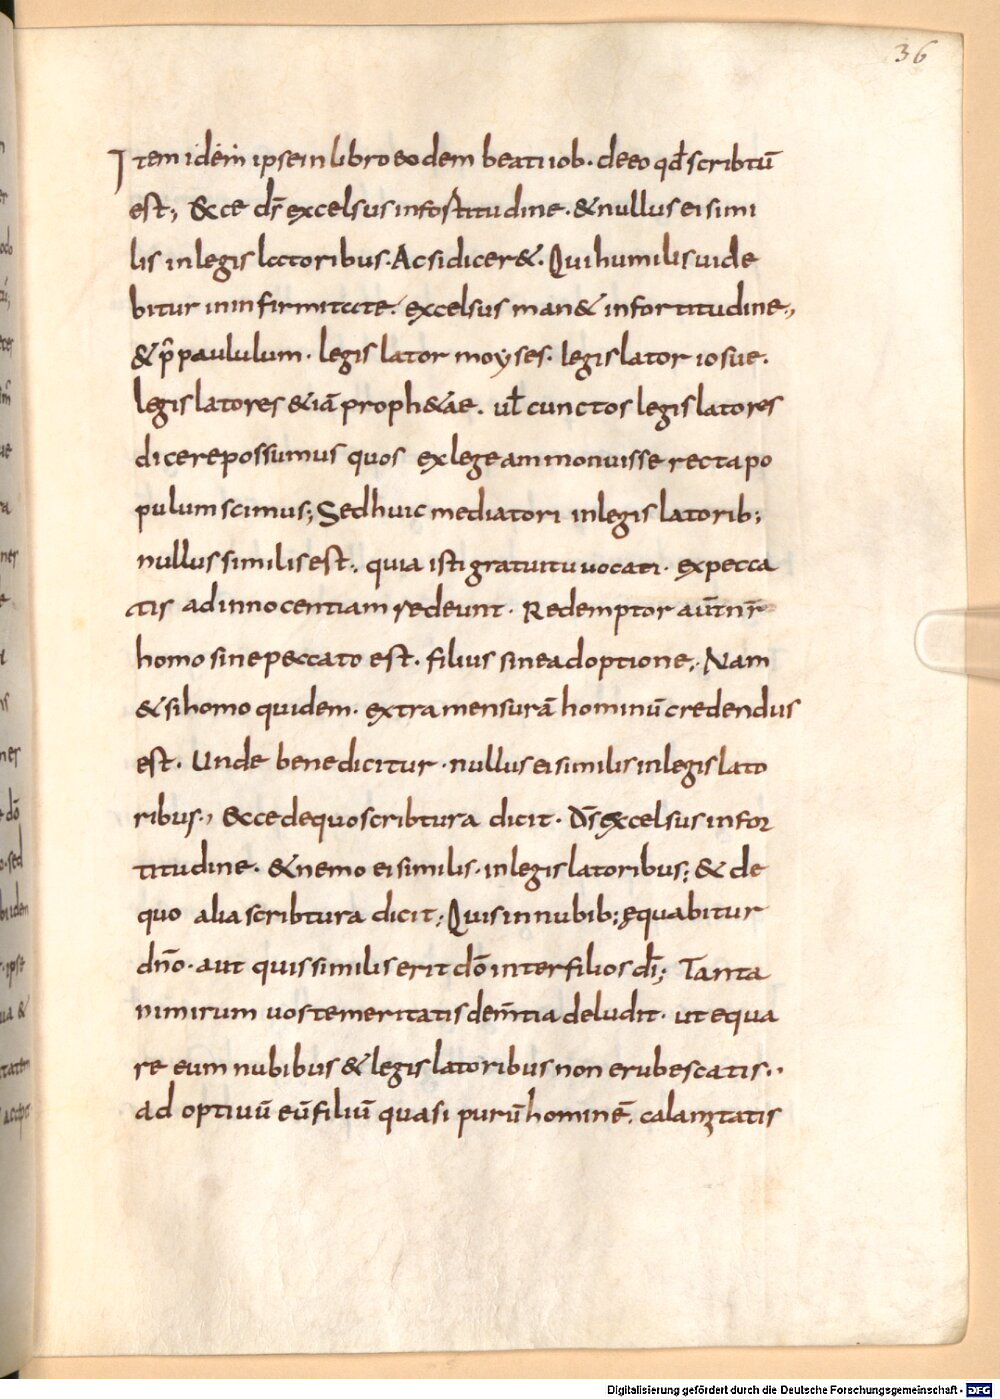 36
Item idem ipse in libro eodem beati iob· de eo qđ scribtū
est; &cce ds̄ excelsus in fortitudine· & nullus ei simi
lis in legis latoribus· Ac si dicer&· Qui humilis uide
bitur in infirmitate· excelsus man& in fortitudine·,
& p̄ paululum· legis lator moyses· legis lator iosue·
legis latores &iā proph&ae· ul̄ cunctos legis latores
dicere possumus quos ex lege ammonuisse recta po
pulum scimus; Sed huic mediatori in legis latorib;
nullus similis est·, quia isti gratuitu uocati· ex pecca
tis ad innocentiam redeunt· Redemptor aūt nr̄
homo sine peccato est· filius sine adoptione·, Nam
& si homo quidem· extra mensurā hominū credendus
est· Unde bene dicitur· nullus ei similis in legis lato
ribus·, Ecce de quo scribtura dicit· Ds̄ excelsus in for
titudine· & nemo ei similis· in legis latoribus; & de
quo alia scribtura dicit; Quis in nubib; ęquabitur
dn̄o· aut quis similis erit dō inter filios dī; Tanta
nimirum uos temeritatis dem̄tia deludit· ut equa
re eum nubibus & legis latoribus non erubescatis··
adoptiuū eū filiū quasi purū hominē· calamitatis
Digitalisierung gefördert durch die Deutsche Forschungsgemeinschaft - DFG